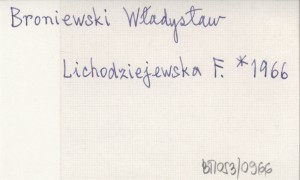 Broniewski Władysław
Lichodziejewska F. *1966